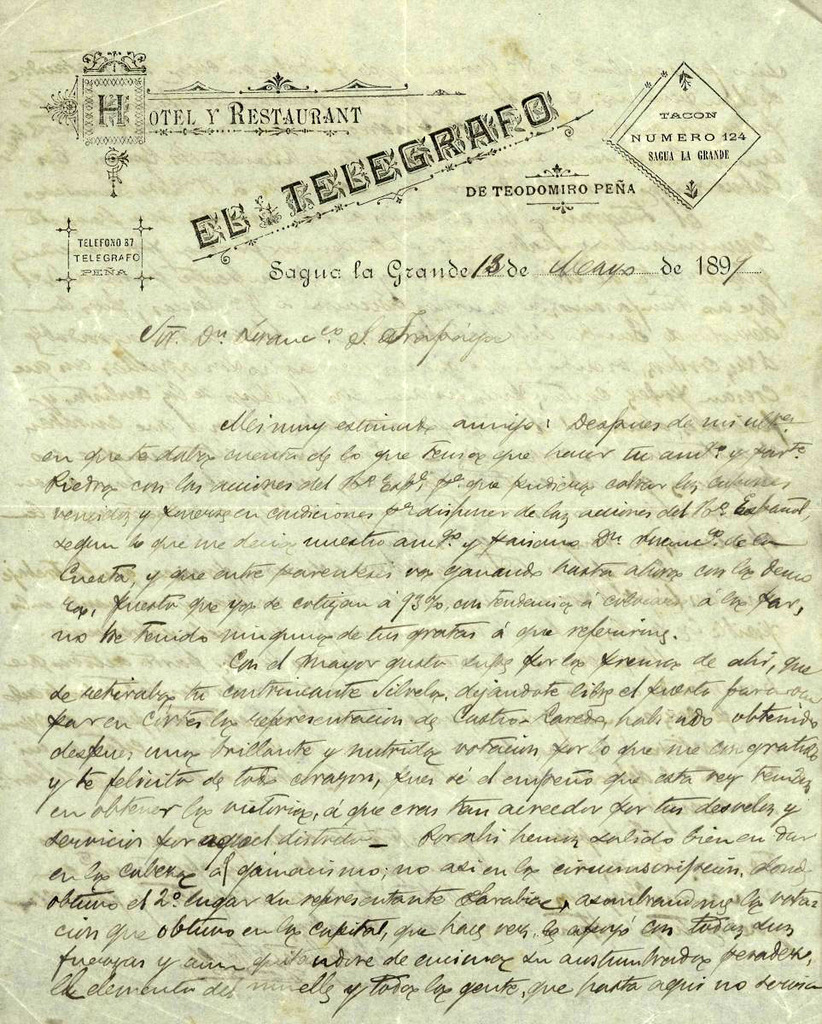 HOTEL Y RESTAURANT
EL TELEGRAFO
DE TEODOMIRO PEÑA
TACON
NUMERO 124
SAGUA LA GRANDE
TELEFONO 87
TELEGRAFO
PEÑA
Sagua la Grande 13 de Mayo de 1891
Sr. Dn Franco S.
Mi muy estimado amigo: Despues de mi
en que te daba cuenta de lo que tenia que hacer tu amo. y parte.
Piedra con las acciones del Bo. Espl. pa. que pudiera cobrar los cupones
vencidos y ponerse en condiciones pa. disponer de las acciones del Bo. Español,
segun lo que me decia nuestro amgo. y paisano Dn. Franco. de la
Cuesta, y que entre parentesis va ganando hasta ahora con la demo
ra, puesto que ya se cotizan á 93% con tendencia á colocarse á la par,
no he tenido ninguna de tus gratas á que referirme.
Con el mayor gusto supe por la prensa de ahi, que
se retiraba tu contrincante Silvela, dejandote libre el puesto para ocu
par en Córtes la representacion de Castro-Caredo, habiendo obtenido
despues una brillante y nutrida votacion por lo que me congratulo
y te felicito de todo corazon, pues sé el empeño que esta vez tenias
en obtener la victoria, á que eras tan acreedor por tus desvelos y
servicios por aquel distrito — Por ahi hemos salido bien en dar
en la cabeza al gamacismo; no asi en la circunscripcion, donde
obtuvo el 2º lugar su representante Sarabia, asombrandome la vota-
cion que obtuvo en la capital, que hace ver, la apoyó con todas sus
fuerzas y aun de encima su acostumbrada
el elemento del muelle y toda la gente, que hasta aqui no servia